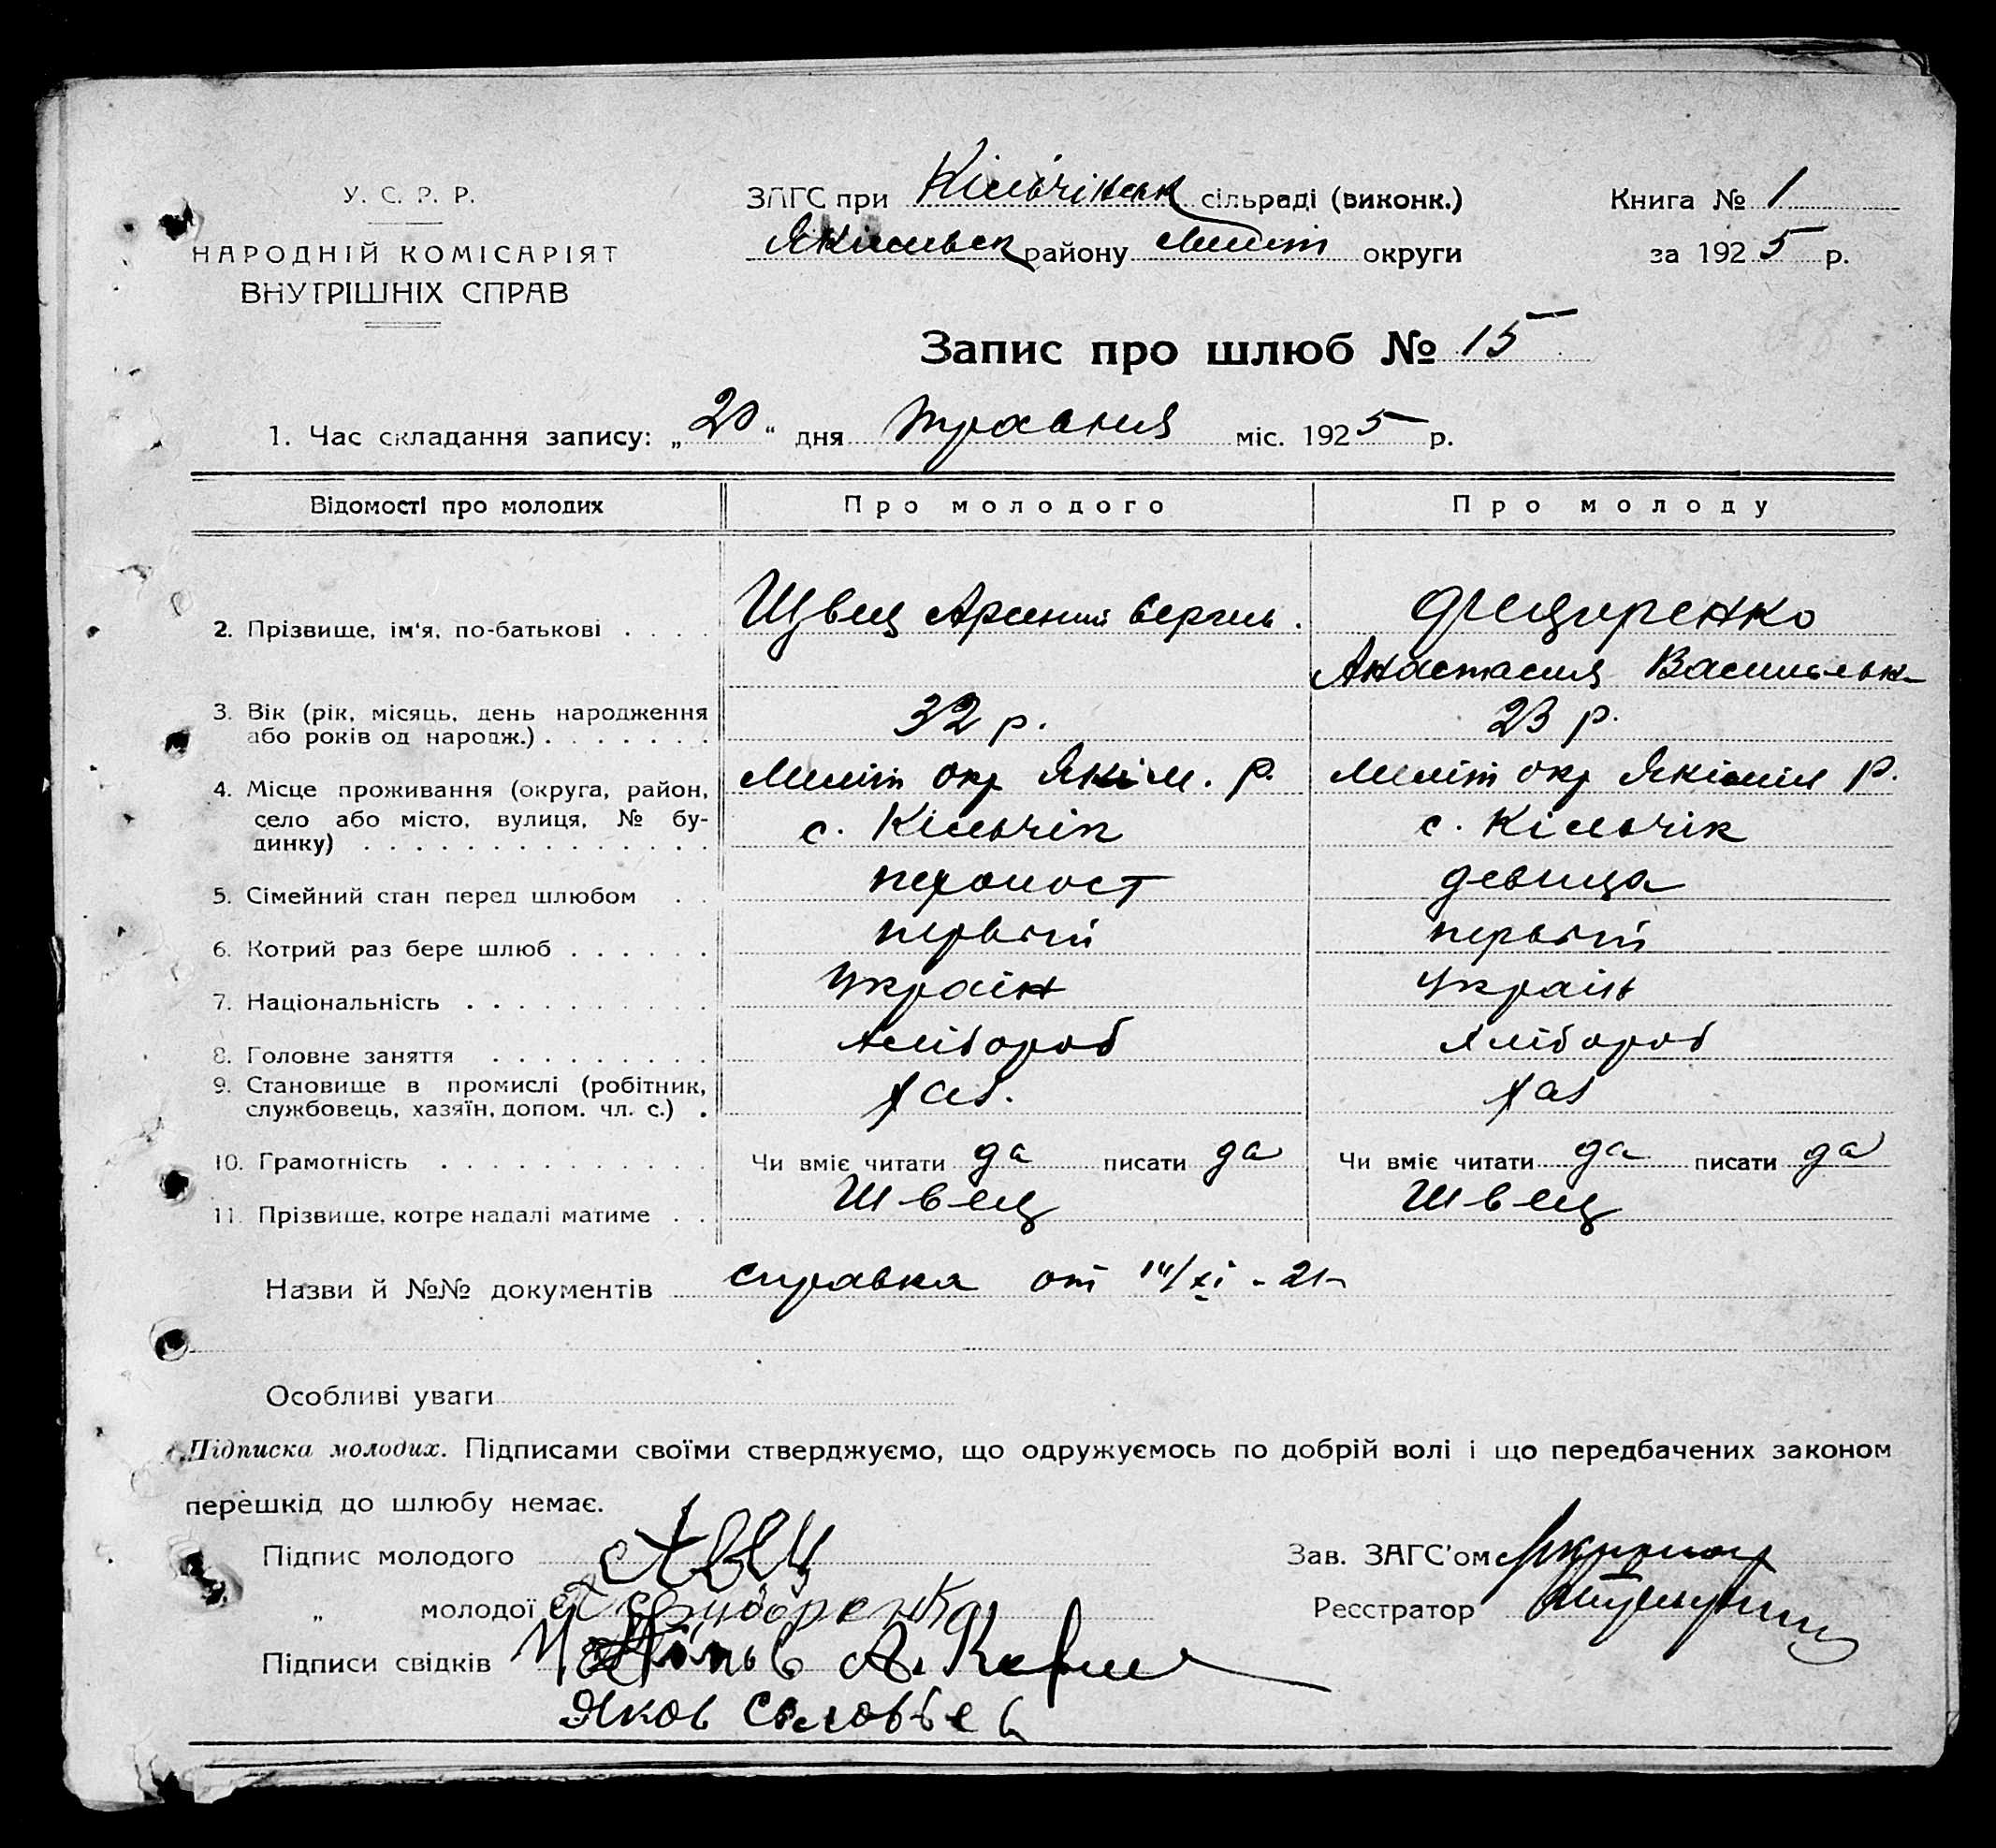 У. С. Р. Р.
НАРОДНІЙ КОМІСАРІЯТ
ВНУТРІШНІХ СПРАВ
ЗАГС при Кільчінськ сільраді (виконк.)
Якимівськ району Меліт округи
Книга № 1
за 1925 р.
Запис про шлюб № 15
1. Час складання запису: „20“ дня травня міс. 1925 р.
Відомості про молодих Про молодого Про молоду
2. Прізвище, ім'я, по-батькові . . . . Швец Арсений Сергеев.
Анастасия Васильевн
3. Вік (рік, місяць, день народження
або років од народж.) . . . . . . . 32 р. 23 р.
4. Місце проживання (округа, район, Меліт окр Якім. р. Меліт окр Якімів р.
село або місто, вулиця, № бу-
динку) . . . . . . . . . . . . . . с. Кільчік с. Кільчік
5. Сімейний стан перед шлюбом . . холост девица
6. Котрий раз бере шлюб . . . . . . первый первый
7. Національність . . . . . . . . . україн україн
8. Головне заняття . . . . . . . . хлібороб хлібороб
9. Становище в промислі (робітник,
службовець, хазяїн, допом. чл. с.) . хаз. хаз
10. Грамотність . . . . . . . . . . Чи вміє читати да писати да Чи вміє читати да писати да
11. Прізвище, котре надалі матиме . . Швец Швец
Назви й №№ документів справка от 14/XI - 21
Особливі уваги
Підписка молодих. Підписами своїми стверджуємо, що одружуємось по добрій волі і що передбачених законом
перешкід до шлюбу немає.
Підпис молодого Швец
„ молодої
Підписи свідків
Яков Соловьев
Зав. ЗАГС'ом
Реєстратор